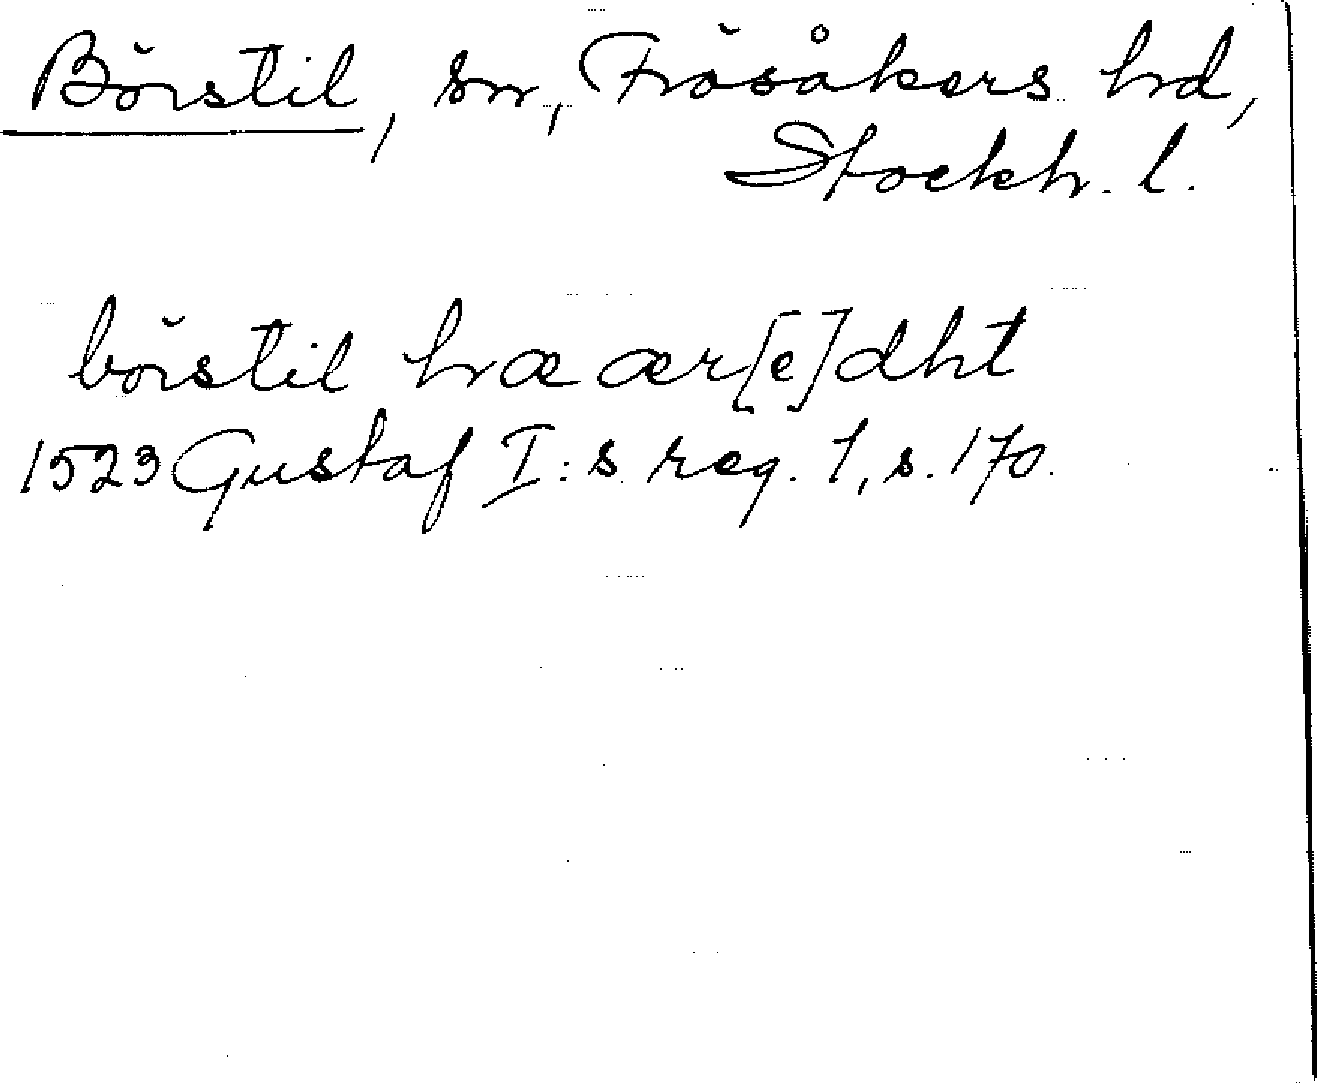 Börstil, sn, Frösåkers hd,
Stockh. l.
börstil hræ ær[e]dht
1523 Gustaf I:s reg. 1, s. 170.